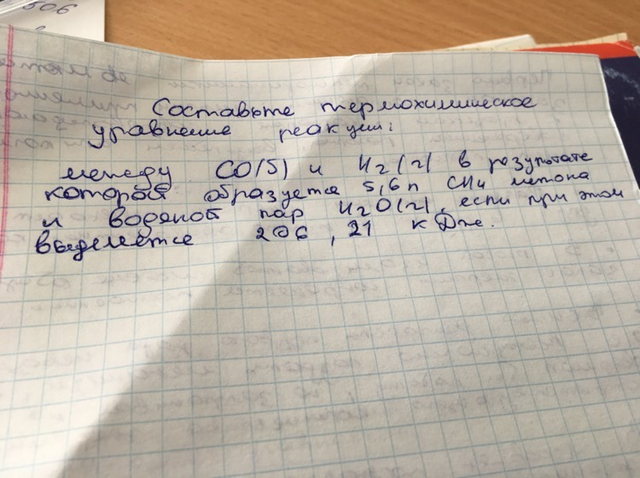 506
Составьте термохимическое
уравнение реакции:
между CO(S) и H2(г) в результате
которой образуется 5,6 л CH4 метана
и водяной пар H2O(г), если при этом
выделяется 206,21 кДж.